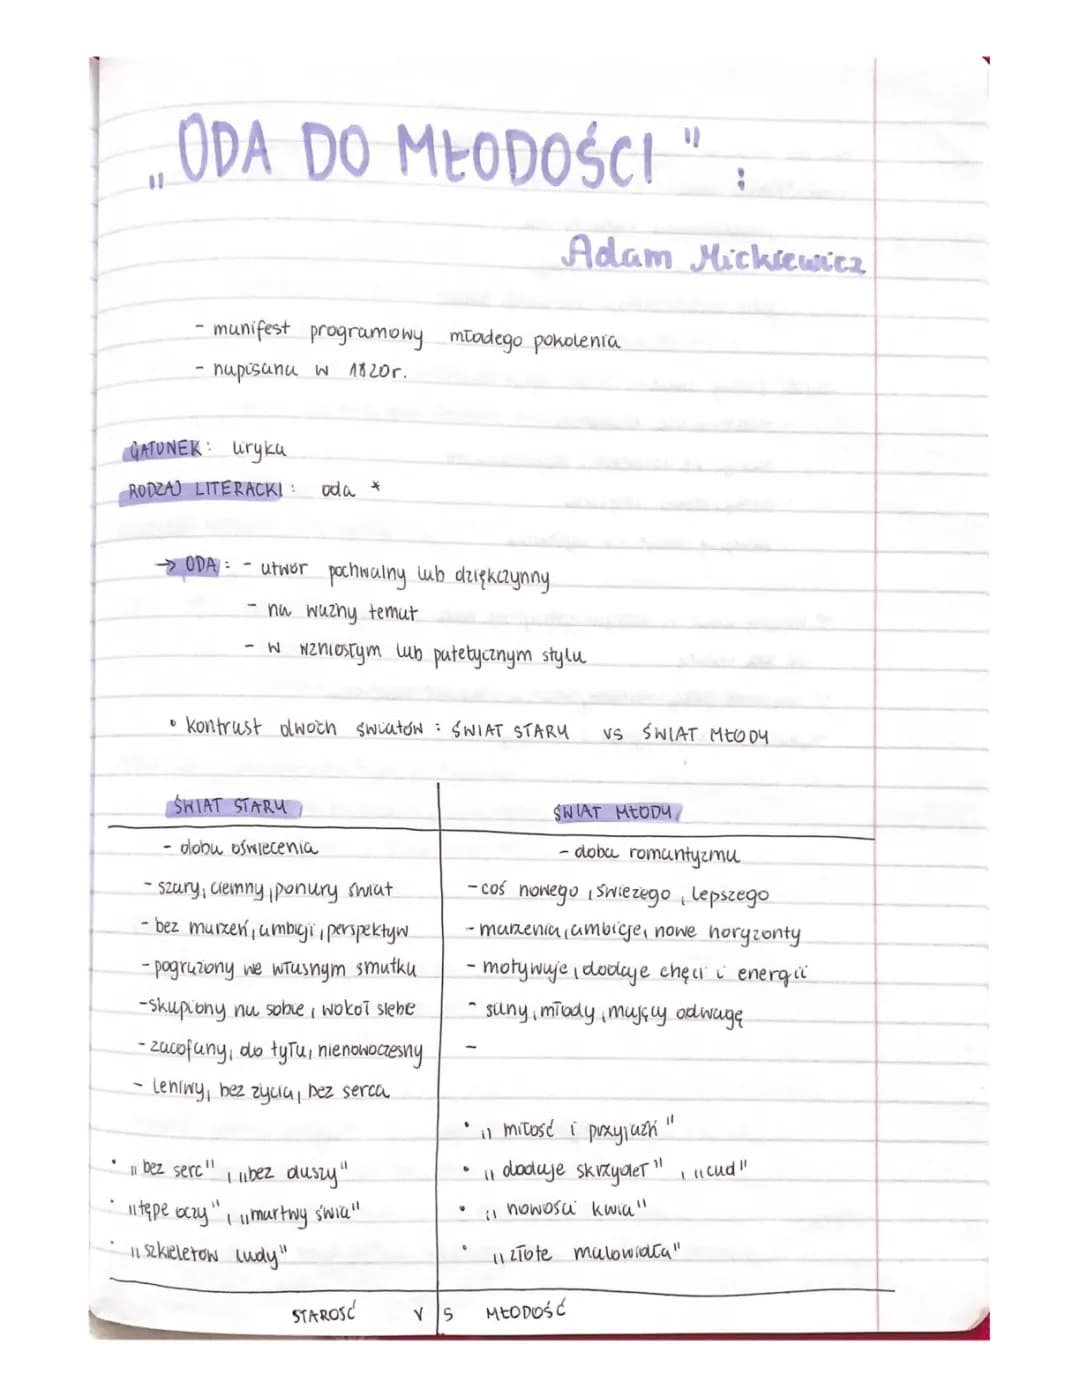 „ODA DO MŁODOŚCI":
Adam Mickiewicz
- manifest programowy młodego pokolenia
- napisana w 1820r.
GATUNEK: liryka
RODZAJ LITERACKI: oda *
→ ODA: - utwór pochwalny lub dziękczynny
- na ważny temat
- w wzniosłym lub patetycznym stylu
• kontrast dwóch światów: ŚWIAT STARY vs ŚWIAT MŁODY
ŚWIAT STARY
- doba oświecenia
- szary, ciemny, ponury świat
- bez marzeń, ambicji, perspektyw
- pogrążony we własnym smutku
- skupiony na sobie, wokół siebie
- zacofany, do tyłu, nienowoczesny
- leniwy, bez życia, bez serca
• „bez serc", „bez duszy"
• „tępe oczy", „martwy świa"
• „szkieletów ludy"
ŚWIAT MŁODY
- doba romantyzmu
- coś nowego, świeżego, lepszego
- marzenia, ambicje, nowe horyzonty
- motywuje, dodaje chęci i energii
- silny, młody, mający odwagę
-
• „miłość i przyjaźń"
• „dodaje skrzydeł", „cud"
• „nowości kwia"
• „złote malowidła"
STAROŚĆ VS MŁODOŚĆ